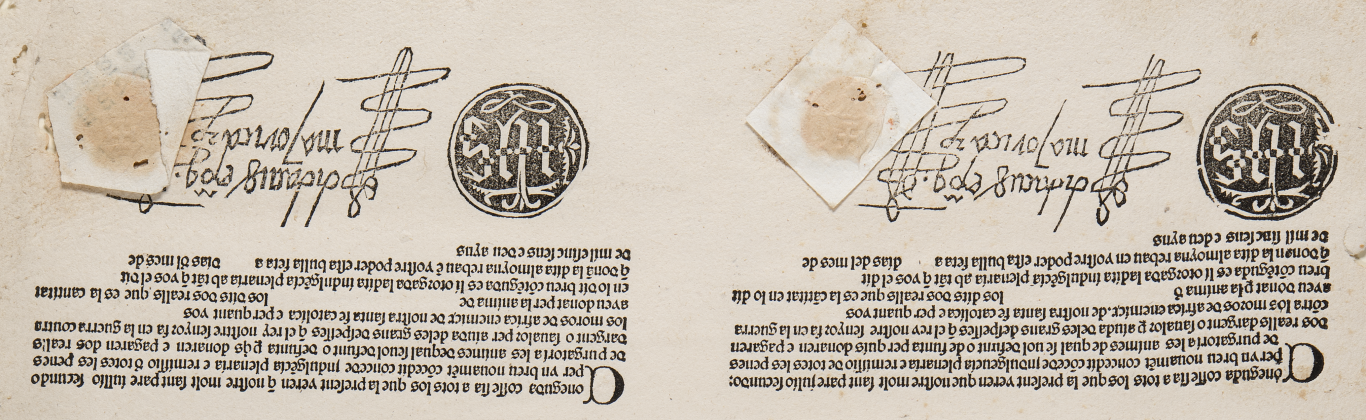 Coneguda cosse sia a tots los que la present veren que nostre molt sant pare julio secundo:
per vn breu nouamēt concedit cōcede indulgencia plenaria e remissio ð totes les penes
De purgatori a les animes de qual se vol defunt o de funta per quis donaren e pagaren
Dos realls dargent o saualor p aiuda deles grans despeses q̄ el rey nostre senyor fa en la guerra
cōtra los moros de africa enemics. de nostra santa fe catolica e per quant vos
aveu donat p la anima ð los dits dos realls que es la cātitat en lo dit
breu cōtēguda es li otorgada ladita indulgēcia plenaria ab tāt q̄ vos el dit
q̄ donau la dita almoyna reban en vostre poder esta bulla feta a dias del mes de
De mil sincsens e deu anys
didacus
maioricaꝝ
Coneguda cosse sia a tots los que la present veren q̄ nostre molt sant pare iulio secundo
per vn breu nouamēt cōcedit concede indulgēcia plenaria e remissio ð totes les penes
de purgatori a les animes de qual seuol defunt o defunta p̄ q̄s donaren e pagaren dos realls
dargent o saualor per aiuda deles grans despeses q̄ el rey nostre senyor fa en la guerra contra
los moros de africa enemicx de nostra santa fe catolica e per quant vos
aveu donat per la anima de los dits dos realls que es la cantitat
en lo dit breu cōtēguda es li otorgada ladita indulgēcia plenaria ab tāt q̄ vos el dit
q̄ donā la dita almoyna reban ē vostre poder esta bulla feta a dias dl mes de
De mil cincsens e deu anys
didacus
maioricaꝝ